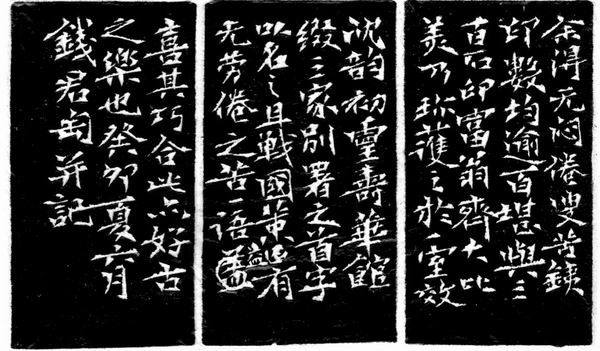 余得无闷倦叟苦鐵
印數均逾百堪與三
百石印富翁齊大比
美乃珎護之於一室效
沈韵初靈壽華館
綴三家別署之首字
以名之且戰國筴有
无勞倦之苦一語盖
喜其巧合此亦好古
之樂也癸卯夏六月
錢君匋并記